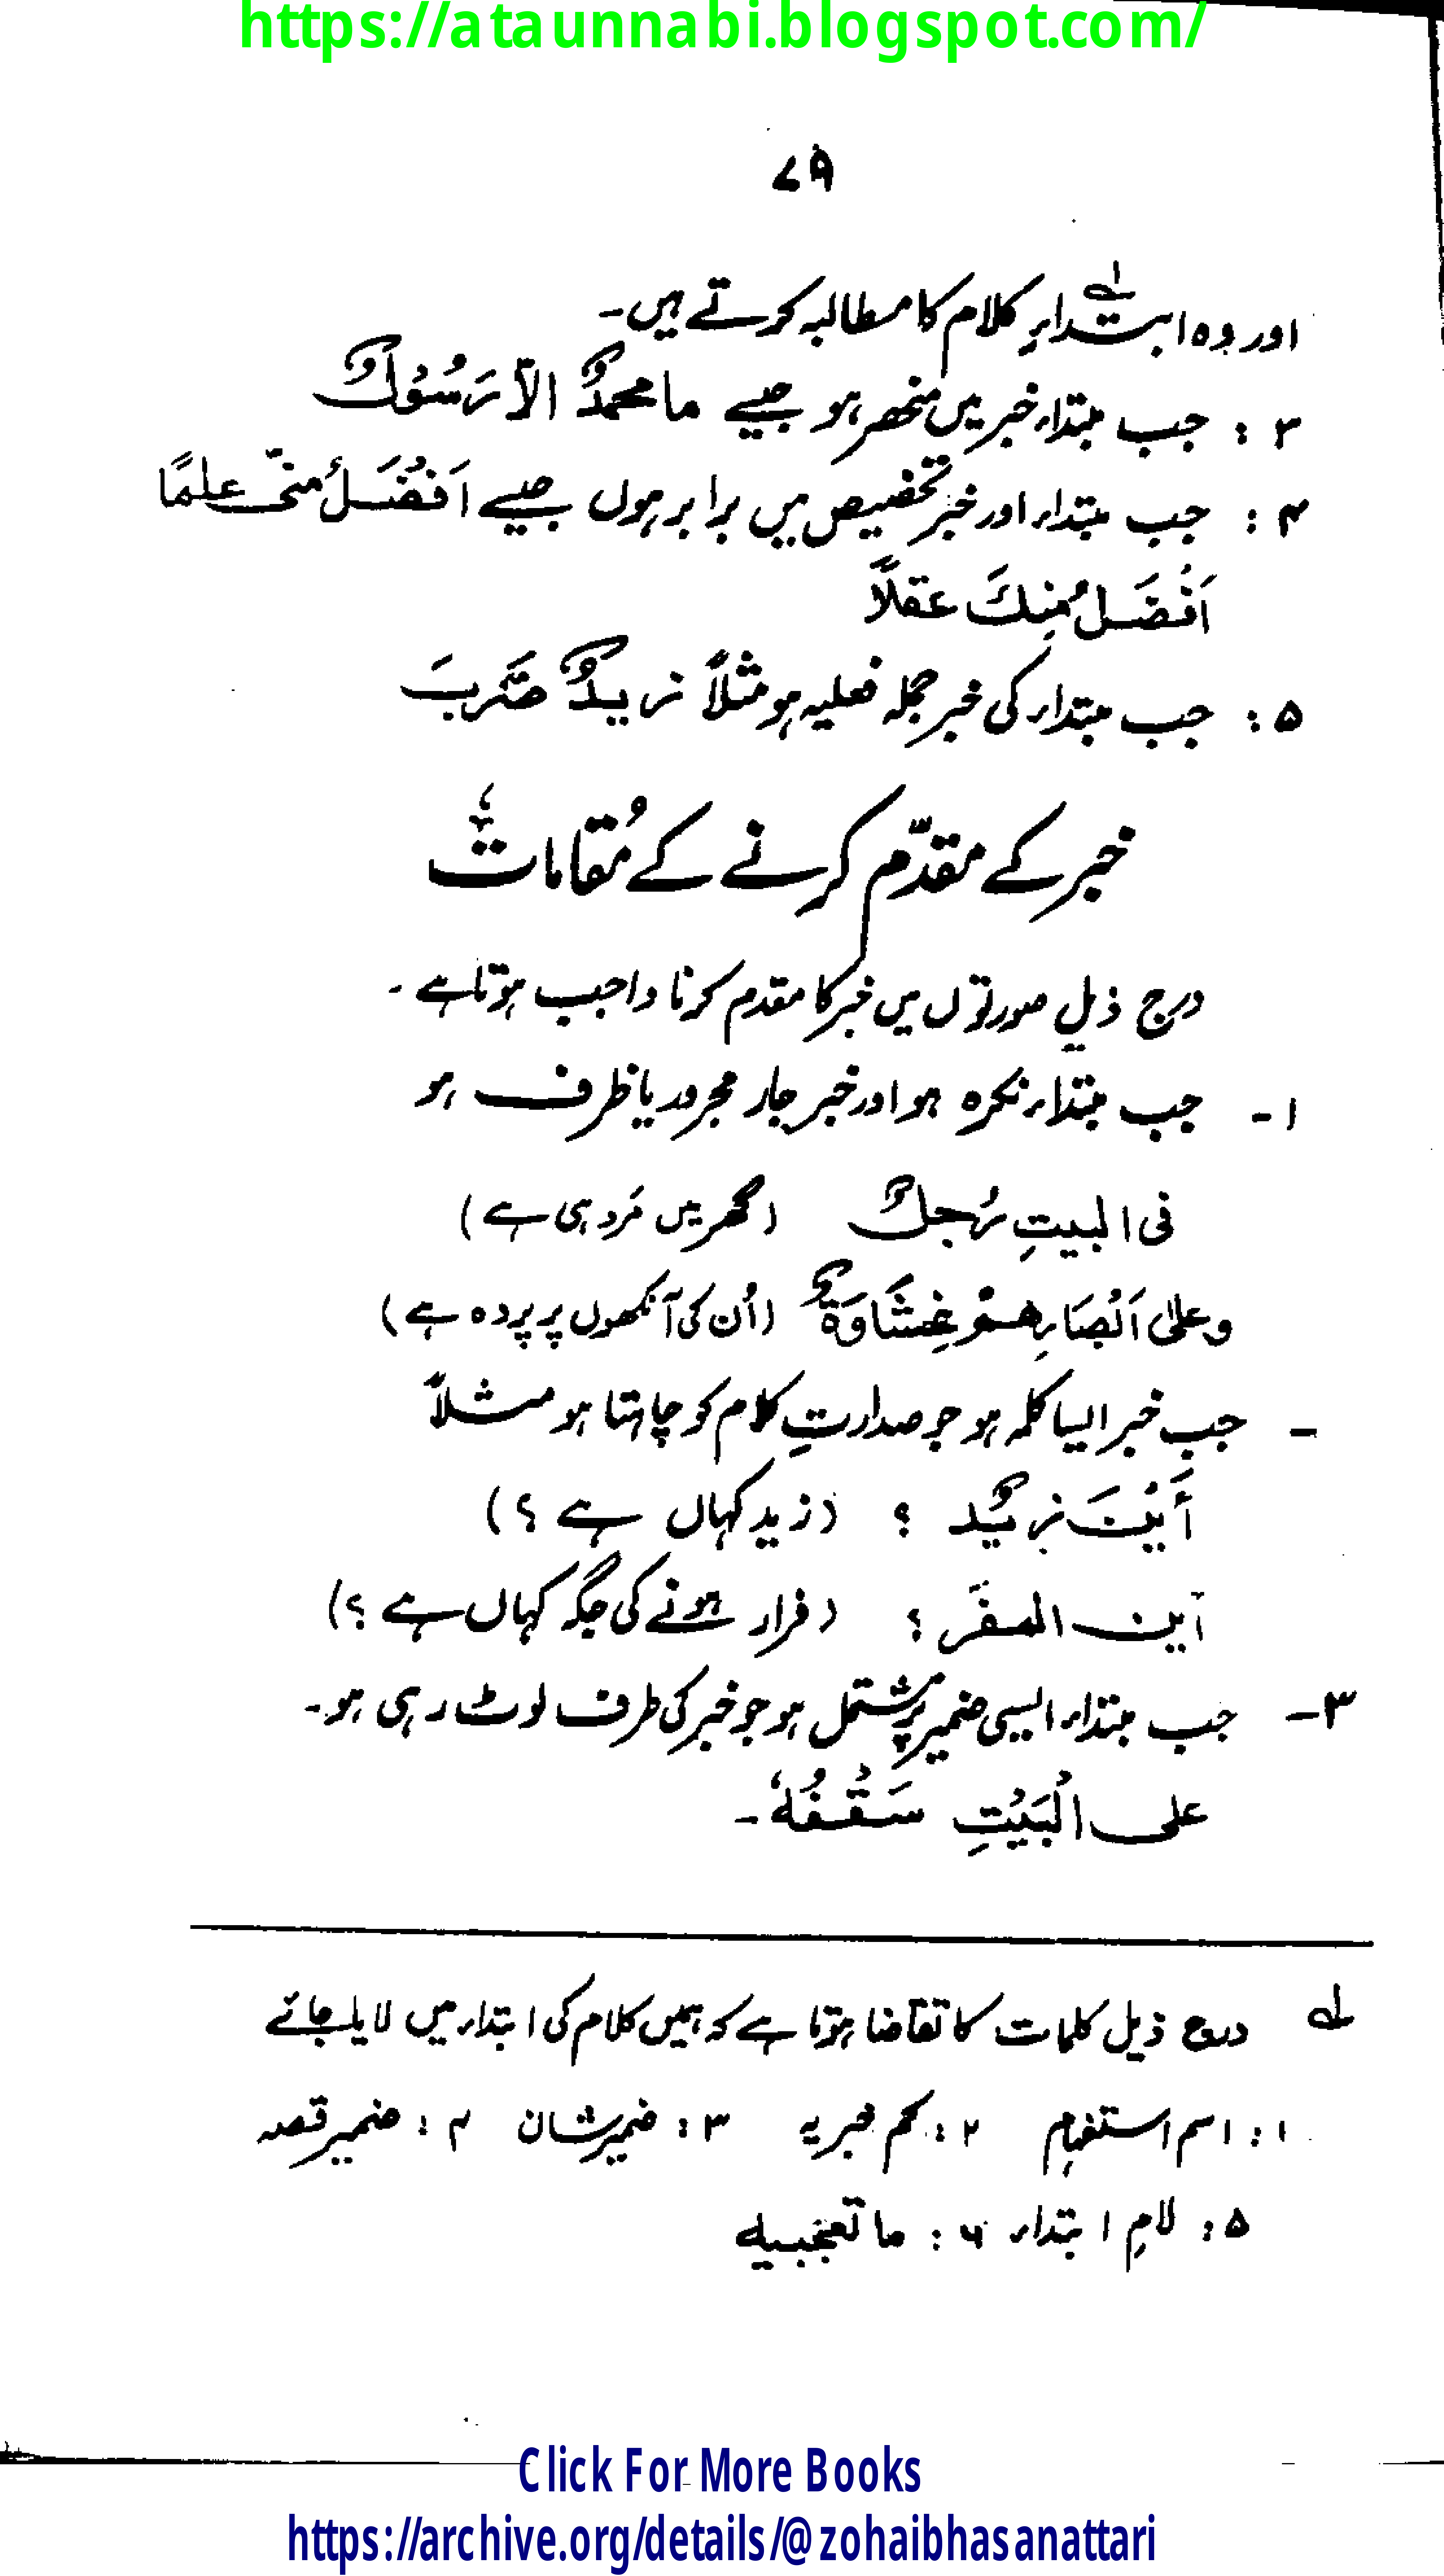 https://ataunnabi.blogspot.com/
۷۹
اور وہ ابتداءِ کلام کا مطالبہ کرتے ہیں۔
۳: جب مبتداء خبر میں منحصر ہو جیسے ما محمدٌ الاّ رَسُوْلٌ
۴: جب مبتداء اور خبر تخصیص میں برابر ہوں جیسے اَفْضَلُ منّی علمًا
اَفْضَلُ مِنكَ عقلًا
۵: جب مبتداء کی خبر جملہ فعلیہ ہو مثلاً زیدٌ ضَرَبَ
خبر کے مقدّم کرنے کے مُقامات
درج ذیل صورتوں میں خبر کا مقدم کرنا واجب ہوتا ہے۔
۱- جب مبتداء نکرہ ہو اور خبر جار مجرور یا ظرف ہو
فی البیتِ رُجلٌ (گھر میں مَرد ہی ہے)
وعلیٰ اَبْصَارِهِمْ غِشَاوَةٌ (اُن کی آنکھوں پر پردہ ہے)
- جب خبر ایسا کلمہ ہو جو صدارتِ کلام کو چاہتا ہو مثلاً
أَیْنَ زیدٌ ؟ (زید کہاں ہے ؟)
این المفَر ؟ (فرار ہونے کی جگہ کہاں ہے ؟)
۳- جب مبتداء ایسی ضمیر پر مشتمل ہو جو خبر کی طرف لوٹ رہی ہو۔
علی الْبَیْتِ سَقْفُهٗ۔
لے درج ذیل کلمات کا تقاضا ہوتا ہے کہ ہمیں کلام کی ابتداء میں لایا جائے
۱: اسم استفہام ۲: کم خبریہ ۳: ضمیر شان ۴: ضمیر قصہ
۵: لامِ ابتداء ۶: ما تعجبیہ
Click For More Books
https://archive.org/details/@zohaibhasanattari